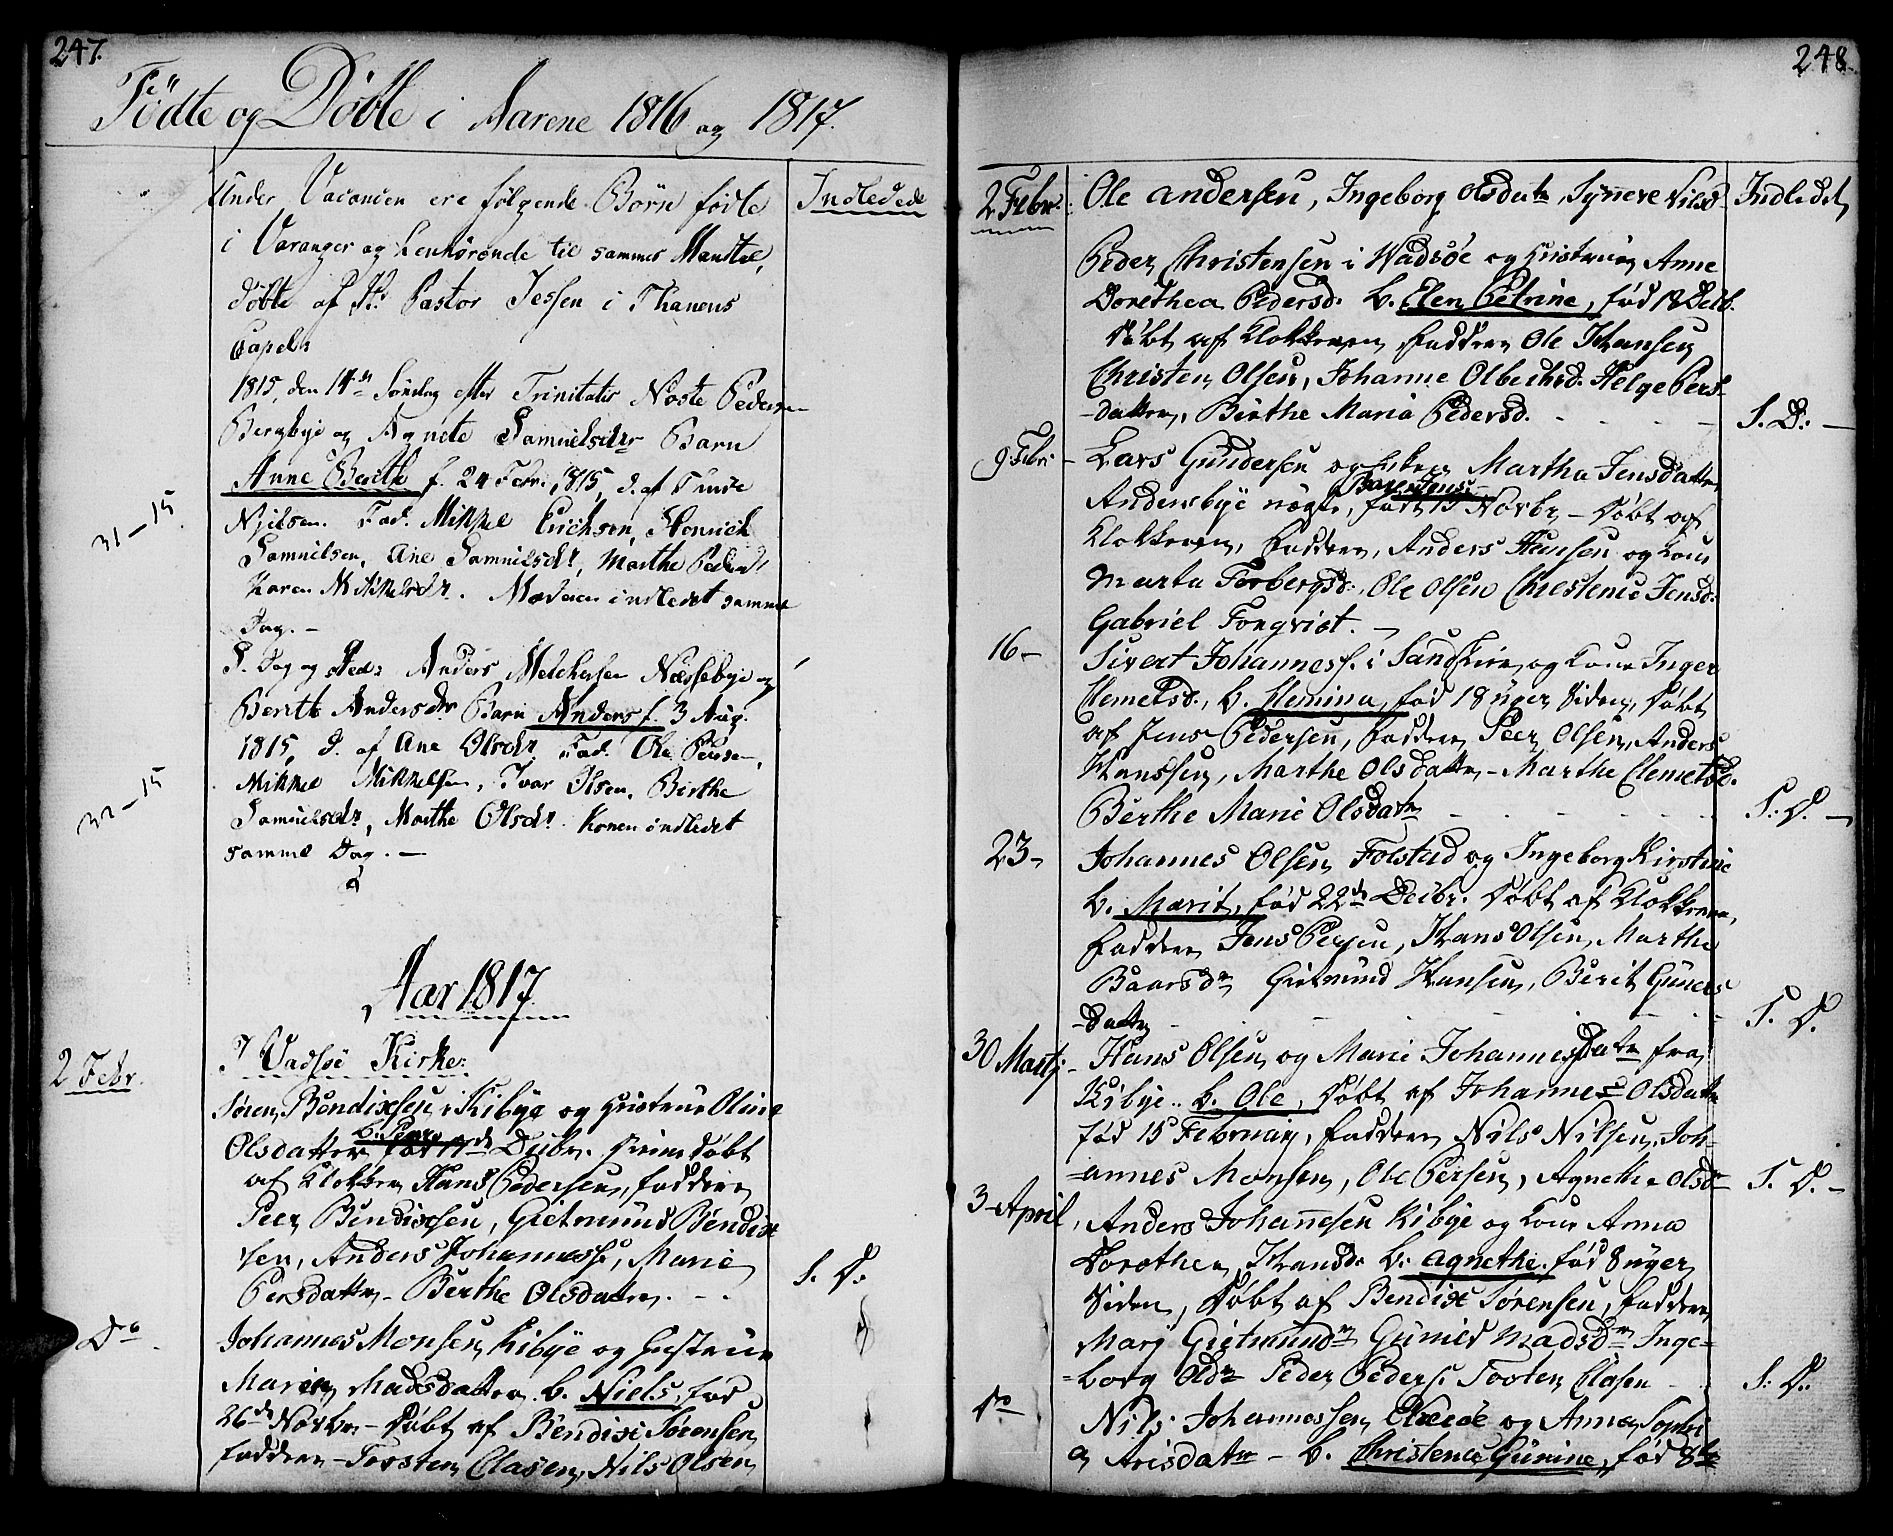 247.
Födte og Döbte i Aarene 1816 og 1817.
Under Vacancen ere følgende Börn födte
Indledede
i Varanger og henhørende til sammes Mandtal,
döbte af Hr Pastor Jessen i Thanens
Capel:
1815, den 14de Söndag efter Trinitatis Noste Pedersen
Bergbye og Agnete Samuelsdr Barn
Anne Berith f. 24 Febr: 1815, d. af
31-15
Nielsen. Fad. Mikkel Erichsen, Henrich
Samuelsen, Ane Samuelsdr, Marthe Peders
Karen Mikkelsdr. Moderen indledet samme
Dag. -
S. Dag og Sted: Anders Melchersen Næssebye og
Berith Andersdr Barn Anders f. 3 Aug.
1815, d. af Ane Olsdr. Fad. Ole Persen,
32-15
Mikkel Mikkelsen, Ivar Olsen, Birthe
Samuelsdr, Marthe Olsdr. Konen indledet
samme Dag. -
Aar 1817.
I Vadsöe Kirke:
2 Febr.
Sören Bendixsen i Kibye og Hustrue Oline
b. Peer
Olsdatter fød 17de Decbr. hiemdöbt
af Klokker Hans Pedersen, faddere
Peer Bendixsen, Gietmund Bendix
sen, Anders Johanness, Marie
Persdattr - Berthe Olsdatter. - -
S. D:
Do
Johannes Monsen Kibye og Hustrue
Maren Madsdatter b. Niels, fød
26de Novbr - Döbt af Bendix Sørensen
faddere - Torsten Clasen, Nils Olsen
248.
2 Febr.
Ole Andersen, Ingeborg Olsdatr, Synneve Nilsd
Indledet
Peder Christensen i Wadsöe og Hustrue Anne
Dorethea Pedersd. b. Elen Petrine, fød 18 Decb.
Döbt af Klokkeren, faddere Ole Hansen
Christen Olsen, Johanne Olbechsd. Helge Pers
-datter, Birthe Maria Pedersd. - - -
S. D: -
9 Febr -
Lars Gundersen og Enken Martha Jensdatter
Barn Jens
Andersbye uægte, fød 15 Novbr - Döbt af
Klokkeren, faddere, Anders Hansen og Kone
Marta Torbergsd:, Ole Olsen Christence Jensd:
Gabriel Fonqvist. -
16 -
Sivert Johanness. i Sandskire og Kone Inger
Clemetsd., b. Clemina, fød 18 uger siden, döbt
af Jens Pedersen, faddere Peer Olsen, Anders
Hanssen, Marthe Olsdatter - Marthe Clemetsd.
Berthe Marie Olsdatr - - - -
S. D. -
23 -
Johannes Olsen Folstad og Ingeborg Kirstine
b. Marit, fød 22de Decbr. Döbt af Klokkeren,
faddere Jens Persen, Hans Olsen, Marthe
Baarsdr Gietmund Hansen, Berit Gunders
-datter - - - -
S. D.
30 Martj -
Hans Olsen og Marie Johannesdatr fra
Kibye.. b. Ole, Döbt af Johannes Olsdatr
fød 15 Februarj, faddere Nils Nilsen, Joh-
-annes Monsen, Ole Persen, Agnethe Olsd -
S. D. -
3 April
Anders Johannesen Kibye og Kone Anna
Dorothea Hansd: b. Agnethe. fød 8 uger
siden, Döbt af Bendix Sørensen, faddere
Marj Gietmundr Guner Madsdr Inge-
-borg Oldr Peder Peders: Tosten Clasen - -
S. D:
Do
Nils Johannessen Ekeröe og Anna Sophi
a Arisdatr - b. Christence Gunine, fød 8te